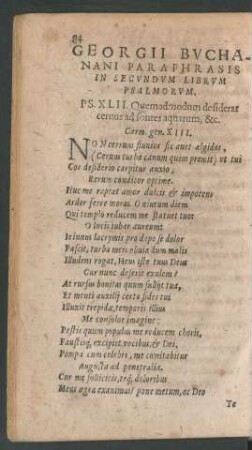 84
GEORGII BVCHA-
NANI PARAPHRASIS
IN SECVNDVM LIBRVM
PSALMORVM.
PS. XLII. Quemadmodum desiderat
cervus ad fontes aquarum, &c.
Carm. gen. XIII.
NON cervus fluvios sic avet algidos,
(Cervus turba canum quem premit) ut tui
Cor desiderio carpitur anxio,
Rerum conditor optime.
Huc me raptat amor dulcis & impotens
Ardor ferre moras. O niveum diem
Qui templo reducem me statuet tuo!
O lucis iubar aureum!
Ieiunus lacrymis pro dape se dolor
Pascit, turba meis probra dum malis
Illudens rogat, Heus iste tuus Deus
Cur nunc deserit exulem?
At rursus bonitas quum subit tua,
Et menti auxilii certa fides tui
Illuxit trepidæ, temporis illius
Me consolor imagine:
Festis quum populus me reducem choris,
Faustisq; excipiet vocibus, & Dei,
Pompa cum celebri, me comitabitur
Augusta ad penetralia.
Cur me sollicitis, teq; doloribus
Mens ægra exanimas? pone metum, ac Deo
Te